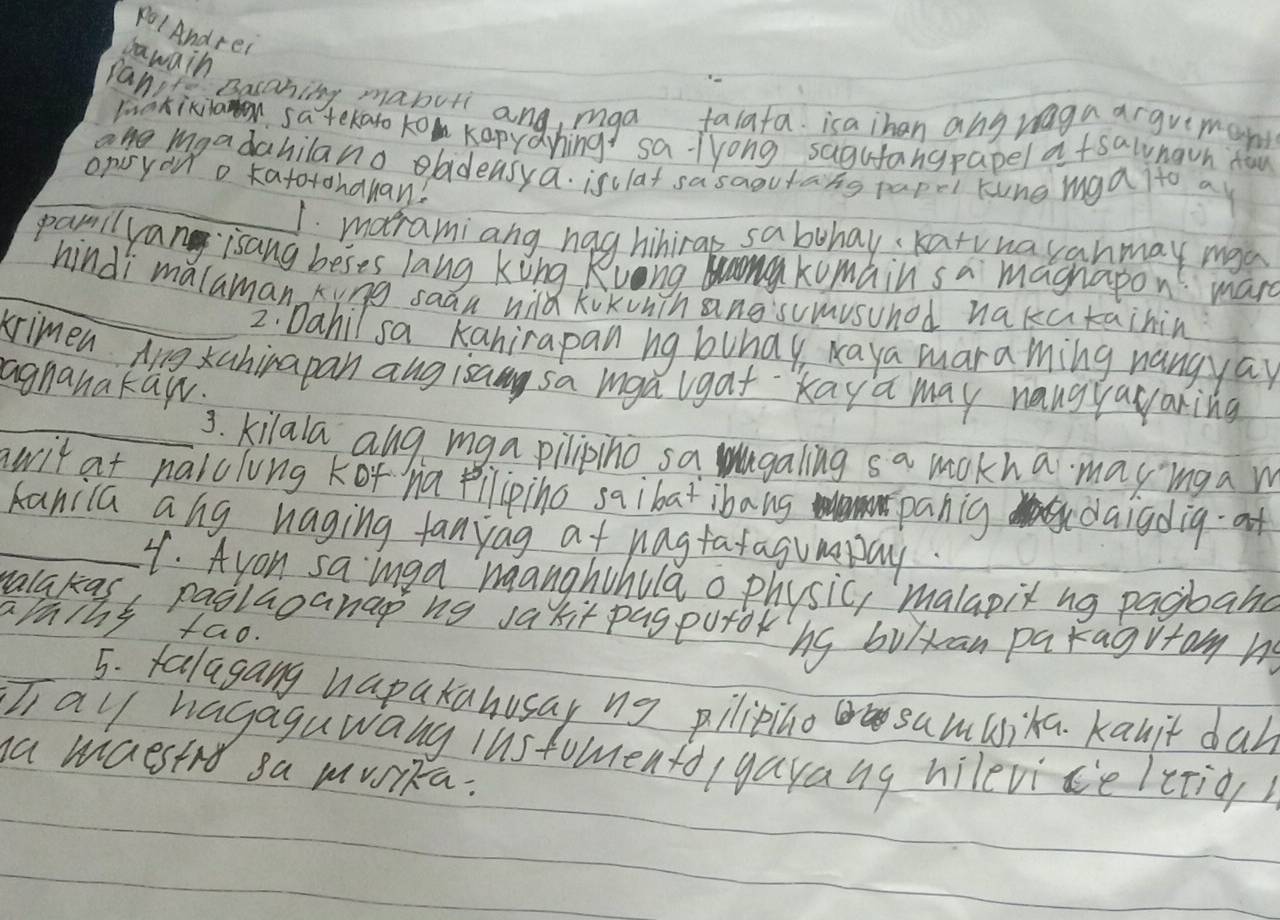 Pol Andrei
Gawain
Panuto Basahing mabuti ang mga talata. isa ihan ang mga arguemant
makikita sa teksto kopyahing sa iyong sagutangpapel at salungun
ang mga dahilan o ebidensya. isulat sa sagutang papel kung mga ito ay
opisyon o katotohanan!
1. marami ang nag hihirap sa buhay. katunayan may mga
pamilyang isang beses lang kung kumain sa maghapon. mara
hindi malaman kung saan nila kukunin ang sumusunod na kakainin
2. Dahil sa kahirapan ng buhay kaya maraming nangyay
krimen Ang kahirapan ang isang sa mga ugat kaya may nangyayaring
agnanakaw.
3. kilala ang mga pilipino sa galing sa mukha. may mga m
awit at nalulung kot na Pilipino sa ibat ibang panig daigdig. at
kanila ang naging tanyag at nagtatagumpay.
4. Ayon sa mga maanghuhula o physic, malapit ng pagbaha
malakas, paglaganap ng sakit pagputok ng bulkan pakagutom ng
tao.
5. talagang napakahusay ng pilipino sa musika. kahit dah
ay nagagawang instumento, gaya ng
na maestro sa musika.